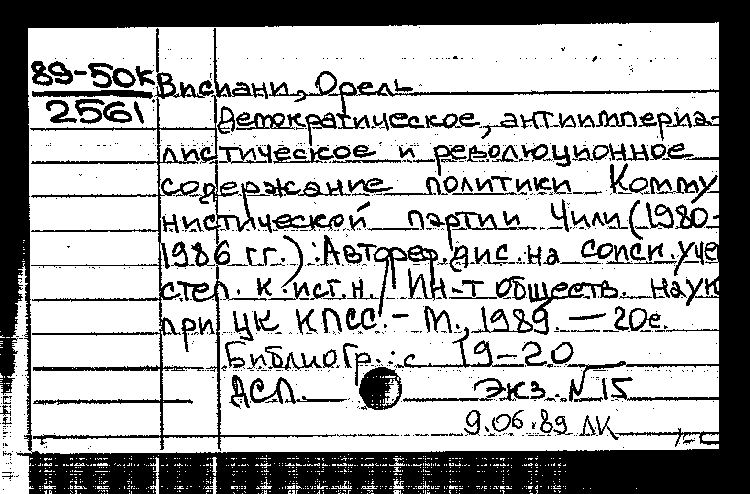 89-50к Висиани, Орель
2561
Демократическое, антиимпериа-
листическое и революционное
содержание политики Комму
нистической партии Чили (1980-
1986 гг.) : Автореф. дис. на соиск. уче
степ. к. ист. н. / Ин-т обществ. наук
при ЦК КПСС. - М., 1989. — 20с.
Библиогр.: с 19-20
ДСП. Экз. №15
9.06.89 ЛК